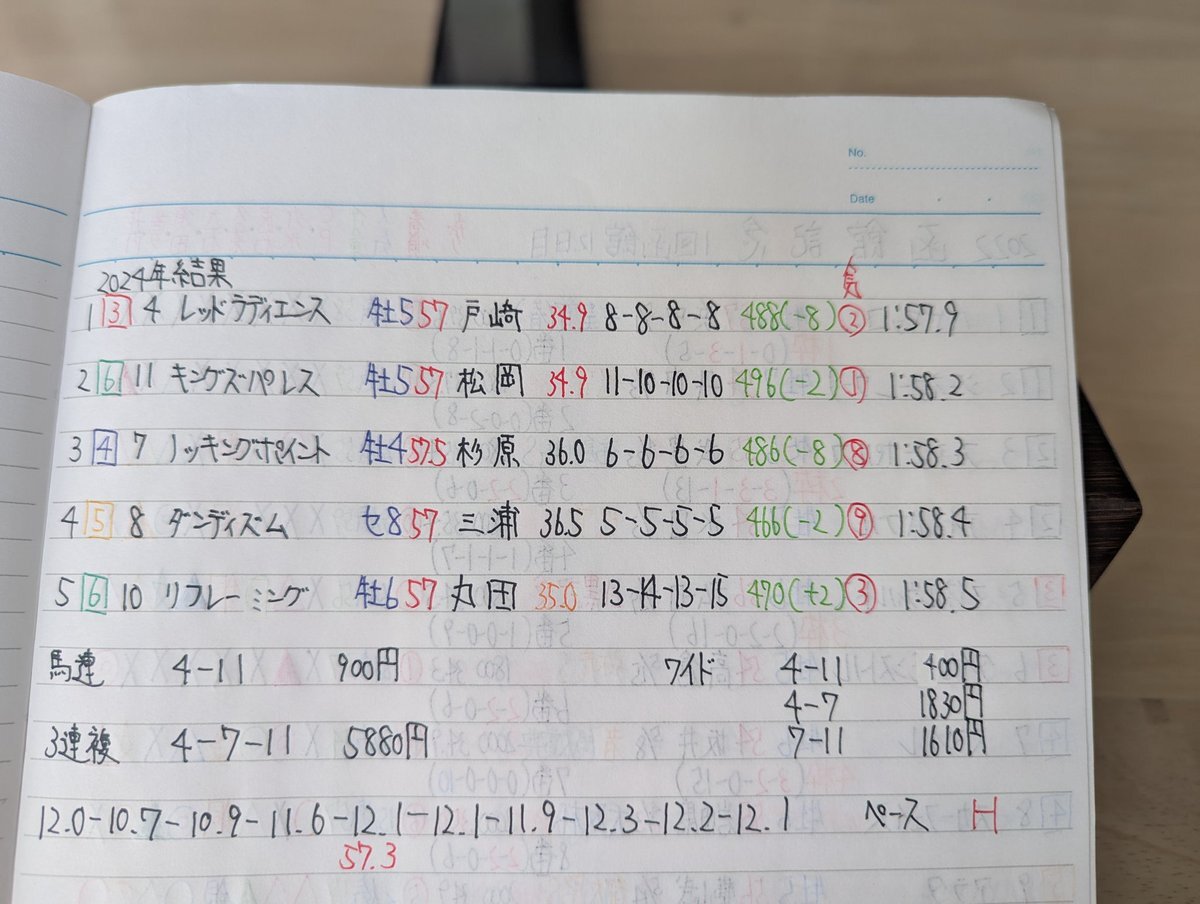 No.
Date
2024年結果
人気
1 3 4 レッドラディエンス 牡5 57 戸崎 34.9 8-8-8-8 488(-8) ② 1:57.9
2 6 11 キングズパレス 牡5 57 松岡 34.9 11-10-10-10 496(-2) ① 1:58.2
3 4 7 ノッキングポイント 牡4 57.5 杉原 36.0 6-6-6-6 486(-8) ⑧ 1:58.3
4 5 8 ダンディズム セ8 57 三浦 36.5 5-5-5-5 466(-2) ⑨ 1:58.4
5 6 10 リフレーミング 牡6 57 丸田 35.0 13-14-13-15 470(+2) ③ 1:58.5
馬連 4-11 900円 ワイド 4-11 400円
4-7 1830円
3連複 4-7-11 5880円 7-11 1610円
12.0-10.7-10.9-11.6-12.1-12.1-11.9-12.3-12.2-12.1 ペース H
57.3